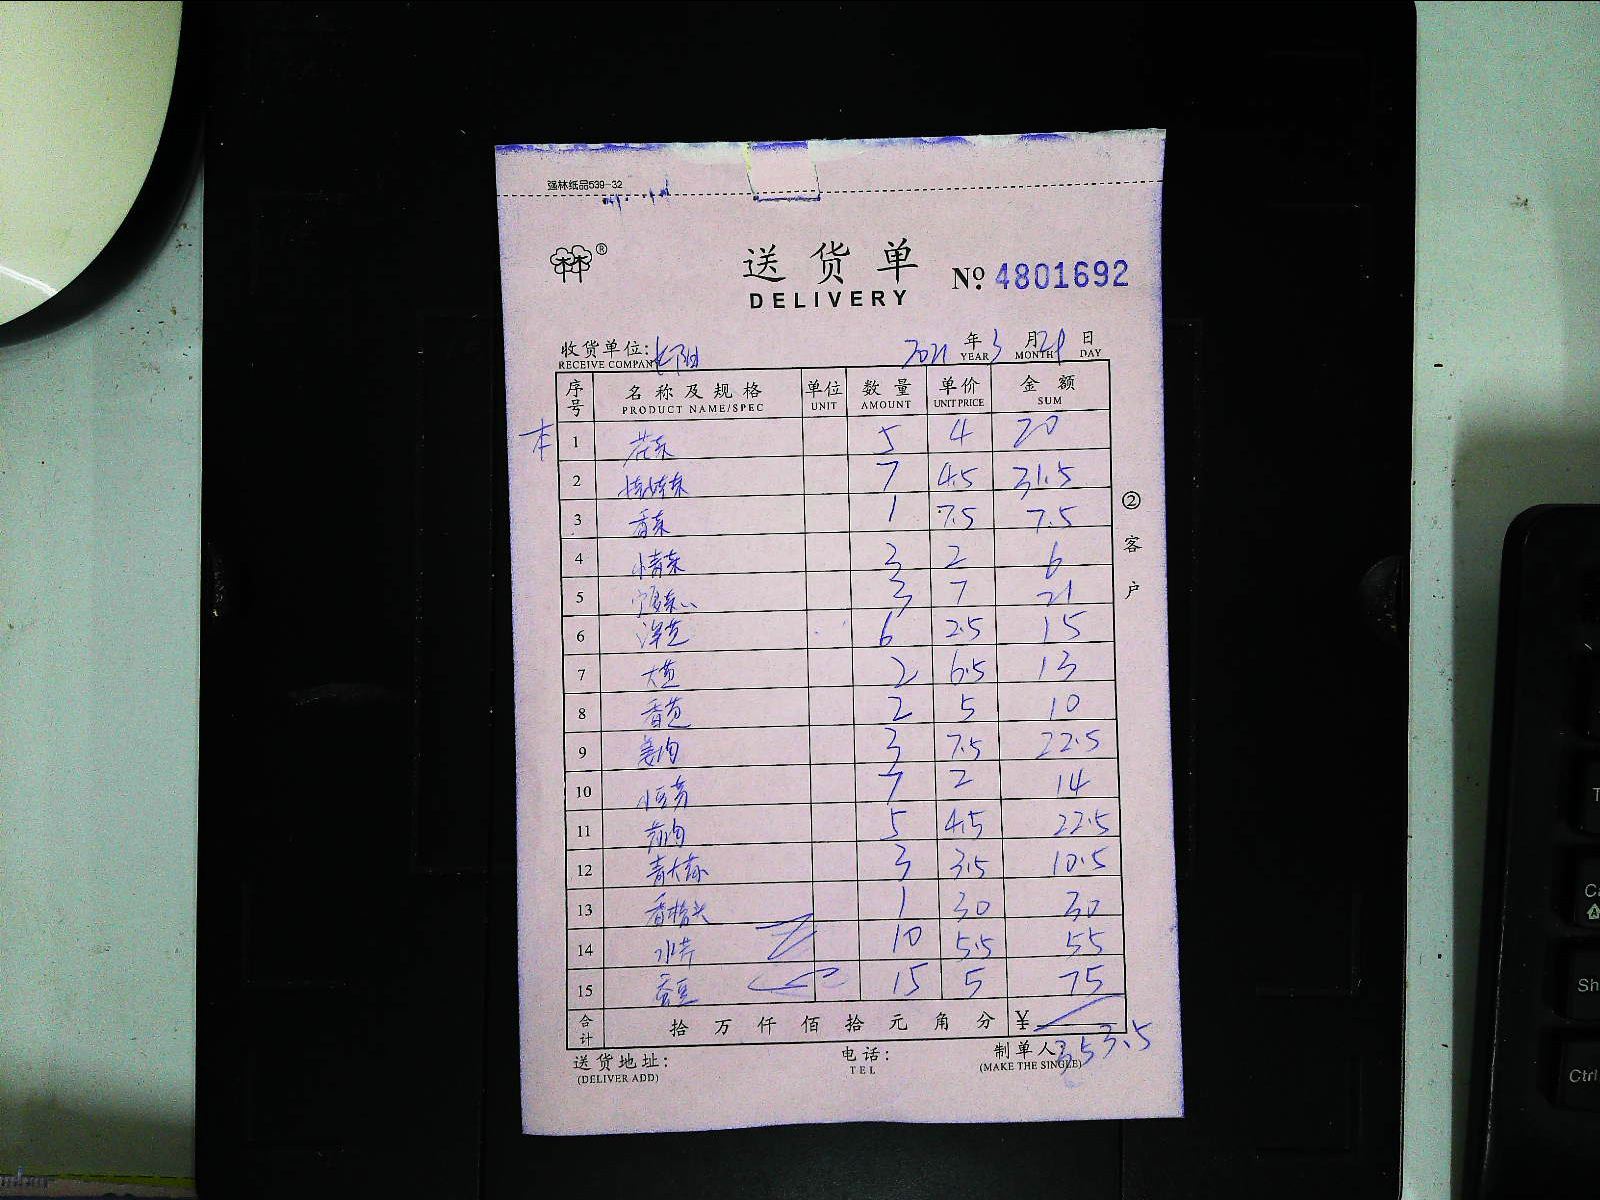 强林纸品539-32
林®
送货单
DELIVERY
№ 4801692
收货单位:
RECEIVE COMPANY
2021 年 3 月 29 日
YEAR MONTH DAY
序号 名称及规格 单位 数量 单价 金额
PRODUCT NAME/SPEC UNIT AMOUNT UNIT PRICE SUM
本 1 花菜 5 4 20
2 7 4.5 31.5
3 香菜 1 7.5 7.5
4 3 2 6
5 3 7 21
6 洋芭 6 2.5 15
7 大芭 2 6.5 13
8 香芭 2 5 10
9 姜肉 3 7.5 22.5
10 7 2 14
11 5 4.5 22.5
12 3 3.5 10.5
13 1 30 30
14 水芹 10 5.5 55
15 蚕豆 15 5 75
合计 拾 万 仟 佰 拾 元 角 分 ¥
353.5
送货地址: 电话: 制单人:
(DELIVER ADD) TEL (MAKE THE SINGLE)
②客户
Ctrl
Sh